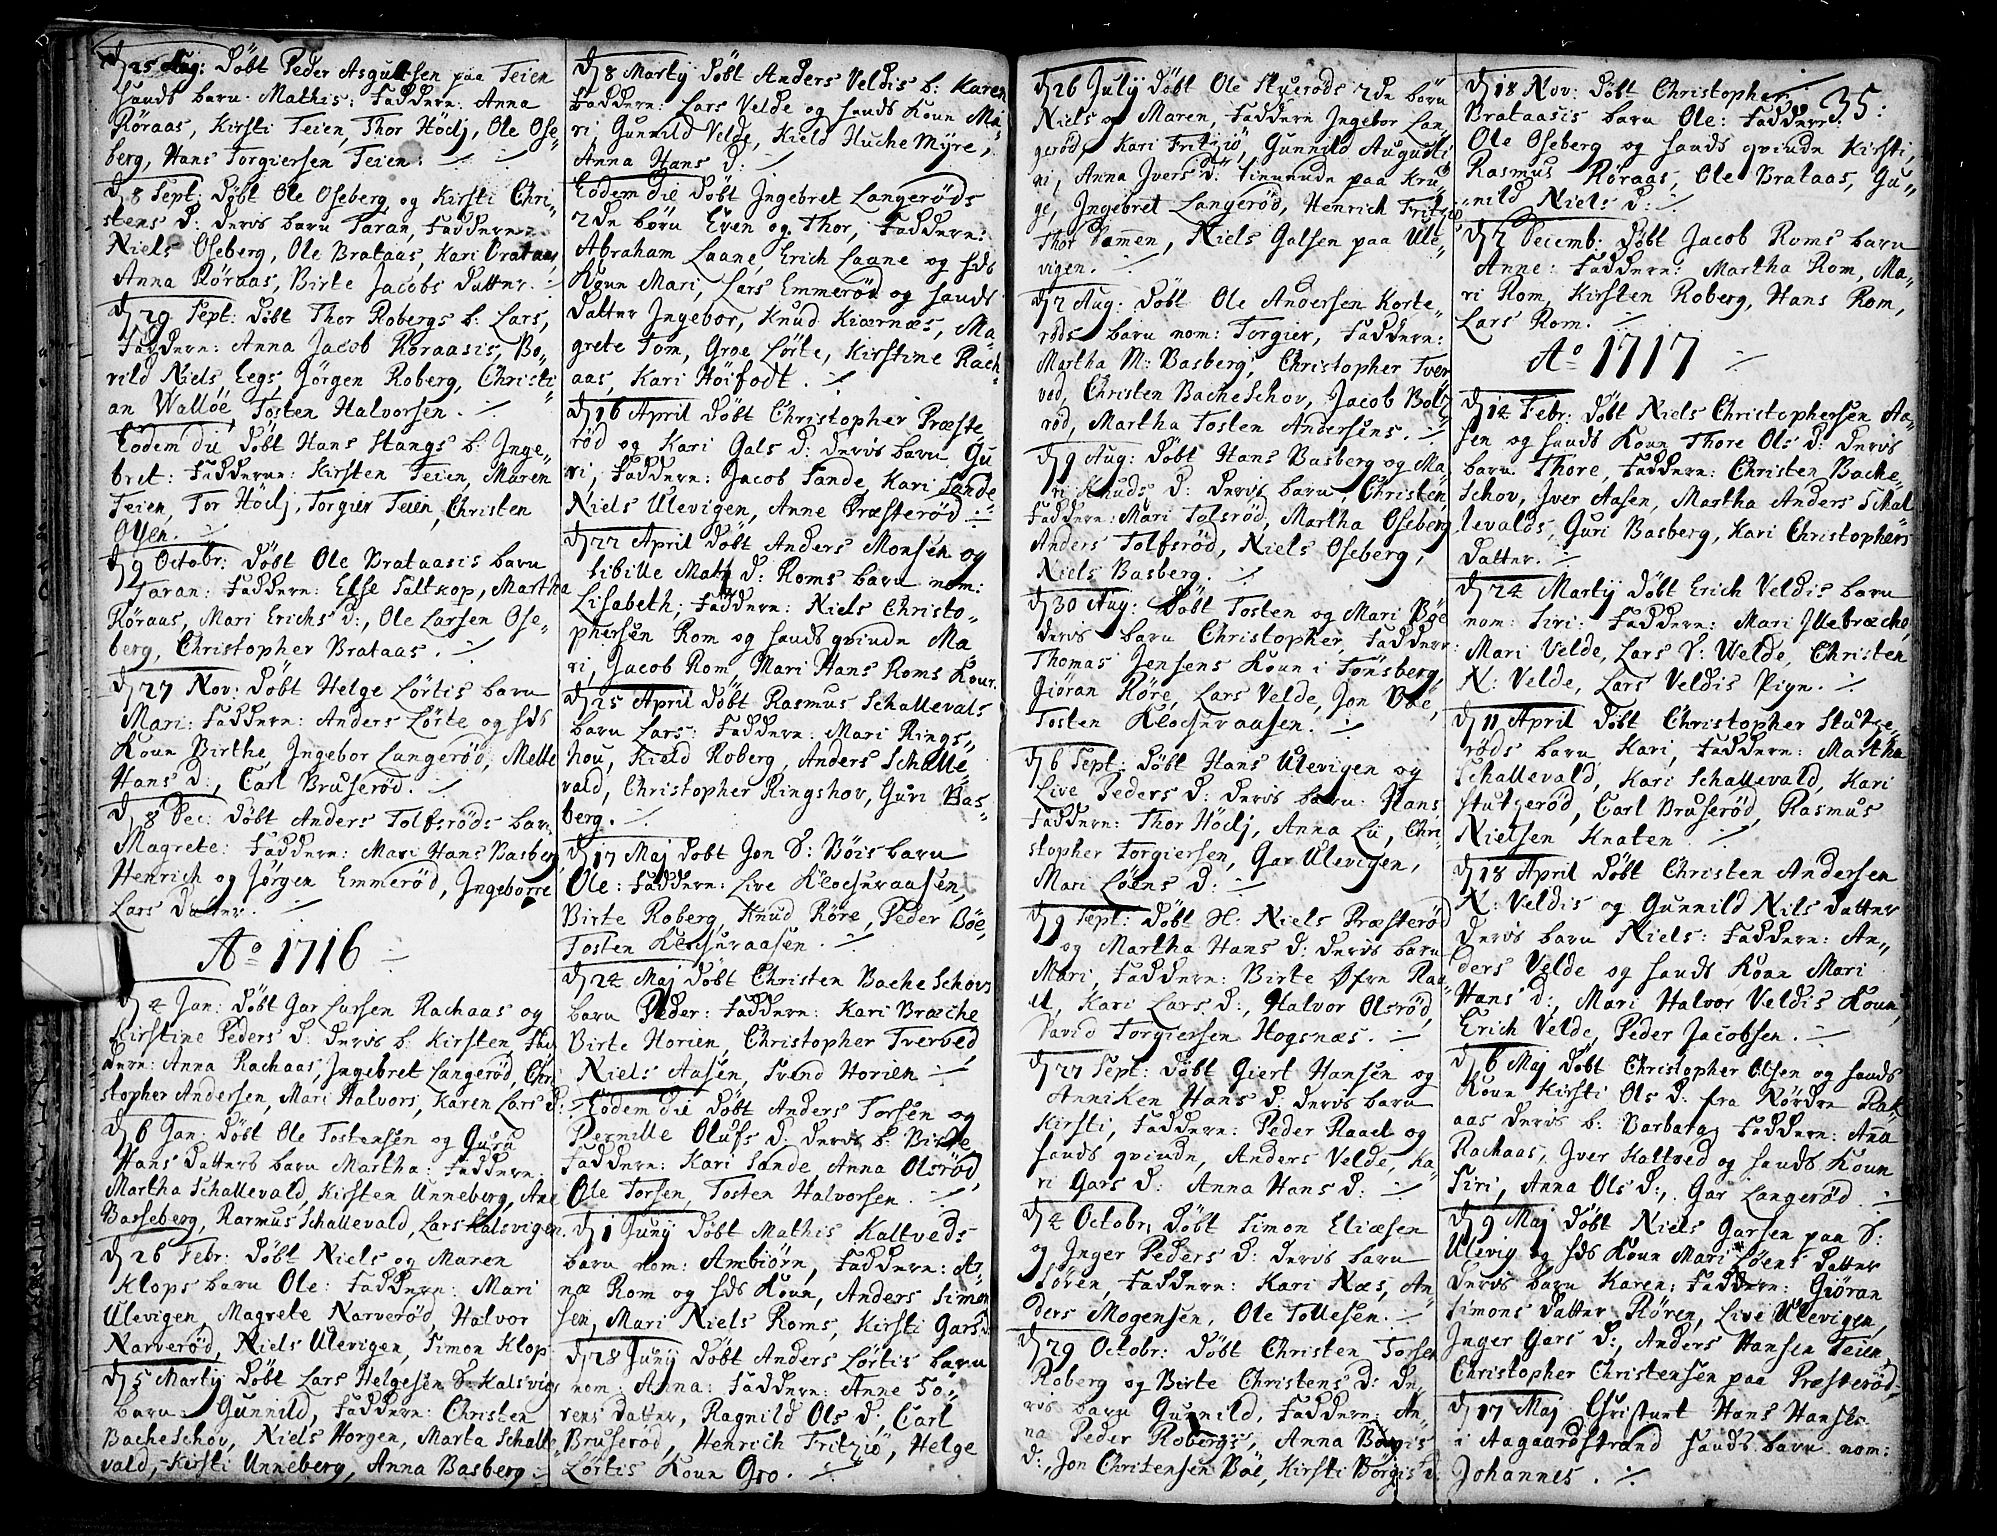 d 25 Aug: døbt Peder Asgultsen paa Teien
hands barn Mathis: Faddere: Anna
Røraas, Kirsti Teien, Thor Hödj, Ole Ose-
berg, Hans Torgiersen Teien.
d 8 Sept: Døbt Ole Oseberg og Kirsti Chri-
stens d: deris barn Taran, Faddere:
Niels Oseberg, Ole Brataas, Kari Brataas,
Anna Røraas, Birte Jacobs Datter.
d 29 Sept: Døbt Thor Robergs b: Lars,
Faddere: Anna Jacob Røraasis, Bo-
rild Niels, Eegs, Jørgen Roberg, Christi-
an Walløe, Tosten Halvorsen.
Eodem die Døbt Hans Stangs b: Inge-
bret: Faddere: Kirsten Teien, Maren
Teien, Tor Hödj, Torgier Teien, Christen
Olsen.
d 9 Octobr: Døbt Ole Brataasis barn
Taran: Faddere: Else Saltkop, Martha
Røraas, Mari Erichs d:, Ole Larsen Ose-
berg, Christopher Brataas.
d 27 Nov: Døbt Helge Lørtis barn
Mari: Faddere: Anders Lørte og hds
Kone Birthe, Ingebor Langerød, Mette
Hans d:, Carl Bruserød.
d 8 Dec: Døbt Anders Tolfsrøds barn
Magrete: Faddere: Mari Hans Basberg
Henrich og Jørgen Emmerød, Ingeborre
Lars Datter.
Ao 1716
d 4 Jan: Døbt Gar Larsen Rachaas og
Kirstine Peders d: deris b: Kirsten Fad
dere: Anna Rachaas, Ingebret Langerød, Chri
stopher Andersen, Mari Halvors, Karen Lars d:
d 6 Jan: Døbt Ole Tostensen og Guru
Hans datters barn Martha: Faddere:
Martha Schallevald, Kirsten Unneberg, Ane
Basseberg, Rasmus Schallevald, Lars Kalsvigen.
d 26 Febr: Døbt Niels og Maren
Klops barn Ole: Faddere: Mari
Ulevigen, Magrete Narverød, Halvor
Narverød, Niels Ulevigen, Simon Klop
d 5 Martij Døbt Lars Helgesen S: Kalsvigs
barn: Gunnild, Faddere: Christen
BacheSchov, Niels Horgen, Marta Schalle
vald, Kirsti Unneberg, Anna Basberg
d 8 Martij døbt Anders Veldis b: Karen
Faddere: Lars Velde og hands Kone Ma-
ri, Gunnild Velde, Kield Huche Myre,
Anna Hans d:
Eodem die døbt Ingebret Langerøds
2de børn Even og Thor, Faddere:
Abraham Laane, Erich Laane og hds
Kone Mari, Lars Emmerød og hands
datter Ingebor, Knud Kiærnæs, Ma-
grete Tom, Groe Lørte, Kirstine Rach-
aas, Kari Höifodt.
d 16 April døbt Christopher Præste
rød og Kari Gals d: deris barn Gu
ri, Faddere: Jacob Sande, Kari Sande
Niels Ulevigen, Anne Præsterød
d 22 April døbt Anders Monsen og
Sibille Mats d: Roms barn nom:
Lisabeth, Faddere: Niels Christo-
phersen Rom og hands qvinde Ma
ri, Jacob Rom, Mari Hans Roms Kone.
d 25 April døbt Rasmus Schallevals
barn Lars: Faddere: Mari Rings-
hou, Kield Roberg, Anders Schalle-
vald, Christopher Ringshov, Guri Bas-
berg.
d 17 Maj døbt Jon S: Bøis barn
Ole: Faddere: Live Klocheraasen,
Birte Roberg, Knud Røre, Peder Bøe,
Tosten Klocheraasen.
d 24 Maj døbt Christen BacheSchovs
barn Peder: Faddere: Kari Bræche
Birte Horien, Christopher Tverved,
Niels Aasen, Svend Horien
Eodem die døbt Anders Torsen og
Pernille Olufs d: deris b: Birte
Faddere: Kari Sande, Anna Olsrød,
Ole Torsen, Tosten Halvorsen
d 1 Junij døbt Mathis Kaltveds
barn nom: Ambiørn, Faddere: Ar-
ne Rom og hds Kone, Anders Simon
sen, Mari Niels Roms, Kirsti Gars d:
d 28 Junij døbt Anders Lørtis barn
nom: Anna: Faddere: Anne Sö-
rens datter, Ragnild Ols d:, Carl
Bruserød, Henrich Fritziö, Helge
Lørtis Kone Gro.
d 26 Julij døbt Ole Huerøds 2de børn
Niels og Maren, Faddere Ingebor Lan-
gerød, Kari Fritziö, Gunnild Augusti
ni, Anna Jvers d: tienende paa Kru-
ge, Ingebret Langerød, Henrich Fritziö
Thor Sømmen, Niels Galsen paa Ule-
vigen.
d 2 Aug: døbt Ole Andersen Korte-
røds barn nom: Torgier, Faddere:
Martha M: Basberg, Christopher Tver
ved, Christen BacheSchov, Jacob Bolt
rød, Martha Tosten Andersens.
d 9 Aug: døbt Hans Basberg og Ma-
ri Knuds d: deris barn Christen,
Faddere: Mari Tolsrød, Martha Oseberg
Anders Tolfsrød, Niels Oseberg,
Niels Basberg.
d 30 Aug: døbt Tosten og Mari Bøe
deris barn Christopher, Faddere:
Thomas Jensens Kone i Tønsberg,
Giøran Røre, Lars Velde, Jon Bøe,
Tosten Klocheraasen.
d 6 Sept: døbt Hans Ulevigen og
Live Peders d: deris barn: Hans
Faddere: Thor Hödj, Anna Lii, Chri-
stopher Torgiersen, Gar Ulevigen,
Mari Löens d:
d 9 Sept: døbt H: Niels Præsterød
og Martha Hans d: deris barn
Mari, Faddere: Birte Øfre Ra-
el, Kari Lars d:, Halvor Olsrød,
David Torgiersen Hogsnæs.
d 27 Sept: døbt Giert Hansen og
Anniken Hans d: deris barn
Kirsti, Faddere: Peder Raael og
hands qvinde, Anders Velde, Ka-
ri Gars d: Anna Hans d:
d 4 Octobr: døbt Simon Eliæsen
og Inger Peders d: deris barn
Søren, Faddere: Kari Næs, An-
ders Mogensen, Ole Tollesen.
d 29 Octobr: døbt Christen Torsen
Roberg og Birte Christens d: de
ris barn Gunnild, Faddere: An-
na Peder Robergs, Anna Børgis
d:, Jon Christensen Bøe, Kirsti Børgis d:
35:
d 18 Nov: døbt Christopher
Brataasis barn Ole: Faddere:
Ole Oseberg og hands qvinde Kirsti,
Rasmus Røraas, Ole Brataas, Gu-
nild Niels d:
d 7 Decemb: døbt Jacob Roms barn
Anne: Faddere: Martha Rom, Ma-
ri Rom, Kirsten Roberg, Hans Rom,
Lars Rom.
Ao 1717
d 14 Febr: døbt Niels Christophersen Aa-
sen og hands Kone Thore Ols d: deris
barn Thore, Faddere: Christen Bache-
Schov, Jver Aasen, Martha Anders Schal
levalds, Guri Basberg, Kari Christophers
datter.
d 24 Martij døbt Erich Veldis barn
nom: Siri: Faddere: Mari Jllebræche,
Mari Velde, Lars S: Welde, Christen
N: Velde, Lars Veldis Pige.
d 11 April døbt Christopher Stutze-
røds barn Kari, Faddere: Martha
Schallevald, Kari Schallevald, Kari
Stutzerød, Carl Bruserød, Rasmus
Nielsen Knaten
d 18 April døbt Christen Andersen
N: Veldis og Gunnild Nils datter
deris barn Niels: Faddere: An-
ders Velde og hands Kone Mari
Hans d:, Mari Halvor Veldis Kone,
Erich Velde, Peder Jacobsen.
d 6 Maj døbt Christopher Olsen og hands
Kone Kirsti Ols d: fra Nørdre Rak
aas deris b: Barbara, Faddere: Anna
Rachaas, Jver Kaltved og hands Kone
Siri, Anna Ols d:, Gar Langerød
d 9 Maj døbt Niels Garsen paa S:
Ulevig og hds Kone Mari Löens datter
deris barn Karen: Faddere: Giøran
Simons datter Røren, Live Ulevigen,
Inger Gars d:, Anders Hansen Teien
Christopher Christensen paa Præsterød
d 17 Maj Christnet Hans Hanses
i Aagaardstrand hands barn nom:
Johannes.